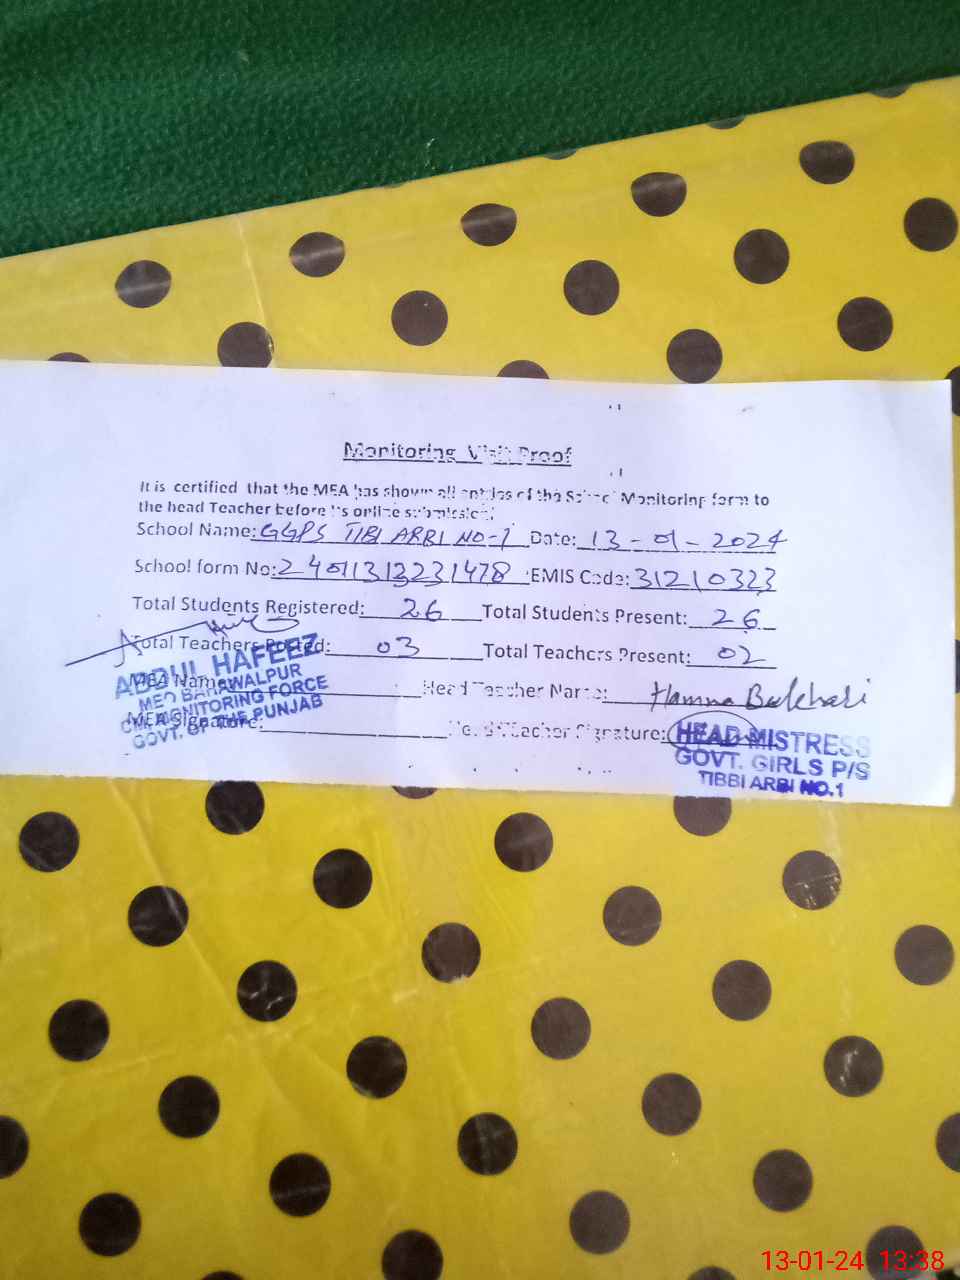 Monitoring Visit Proof
It is certified that the MEA has shown all entries of the School Monitoring form to
the head Teacher before its online submission.
School Name: GGPS TIBI ARBI NO-1 Date: 13-01-2024
School form No: 24011313231478 EMIS Code: 31210323
Total Students Registered: 26 Total Students Present: 26
Total Teachers Posted: 03 Total Teachers Present: 02
MEA Name: Head Teacher Name: Hamna Bukhari
MEA Signature: Head Teacher Signature:
ABDUL HAFEEZ
MEO BAHAWALPUR
CM MONITORING FORCE
GOVT. OF THE PUNJAB
HEAD MISTRESS
GOVT. GIRLS P/S
TIBBI ARBI NO.1
13-01-24 13:38